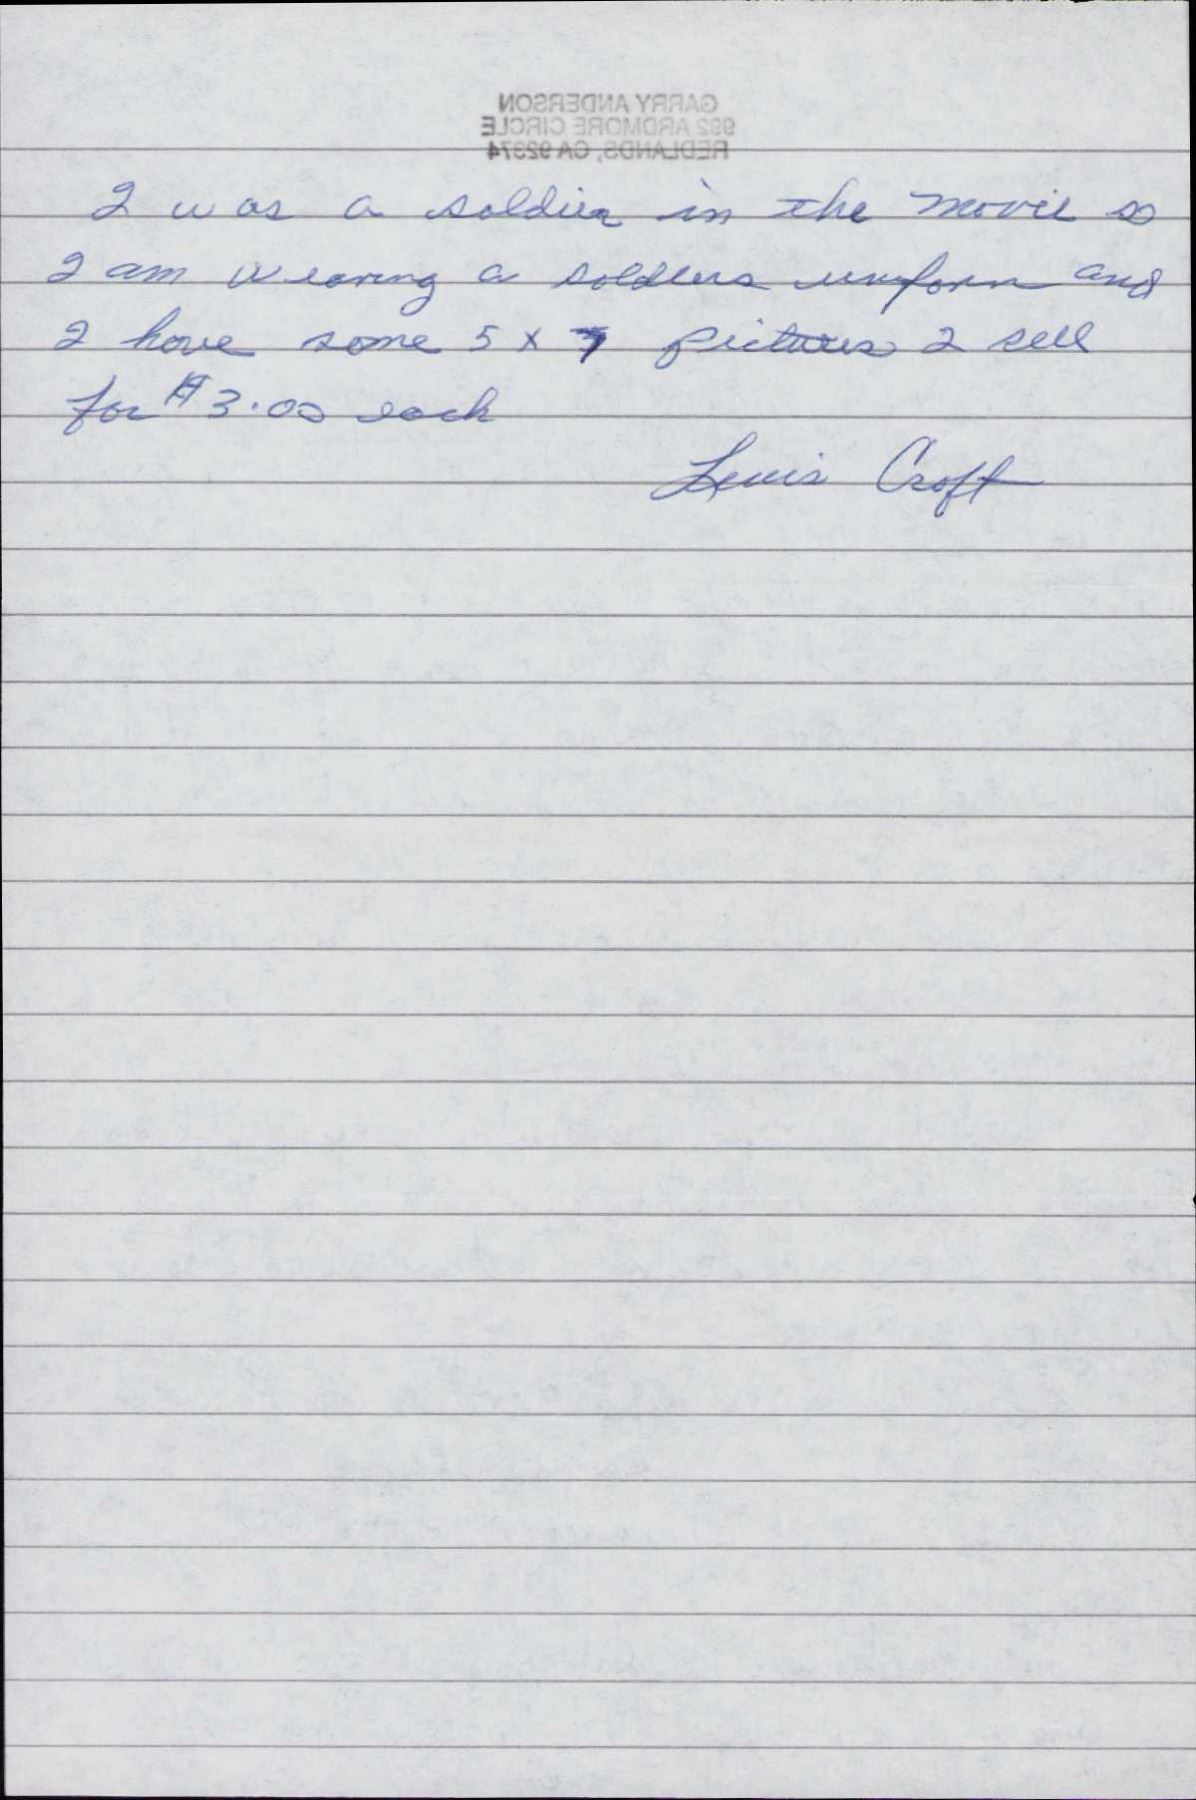 GARRY ANDERSON
992 ARDMORE CIRCLE
REDLANDS, CA 92374
I was a soldier in the movie so
I am wearing a soldiers uniform and
I have some 5 x 7 pictures I sell
for $3.00 each
Lewis Croft